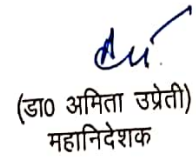 (डा० अमिता उप्रेती)
महानिदेशक